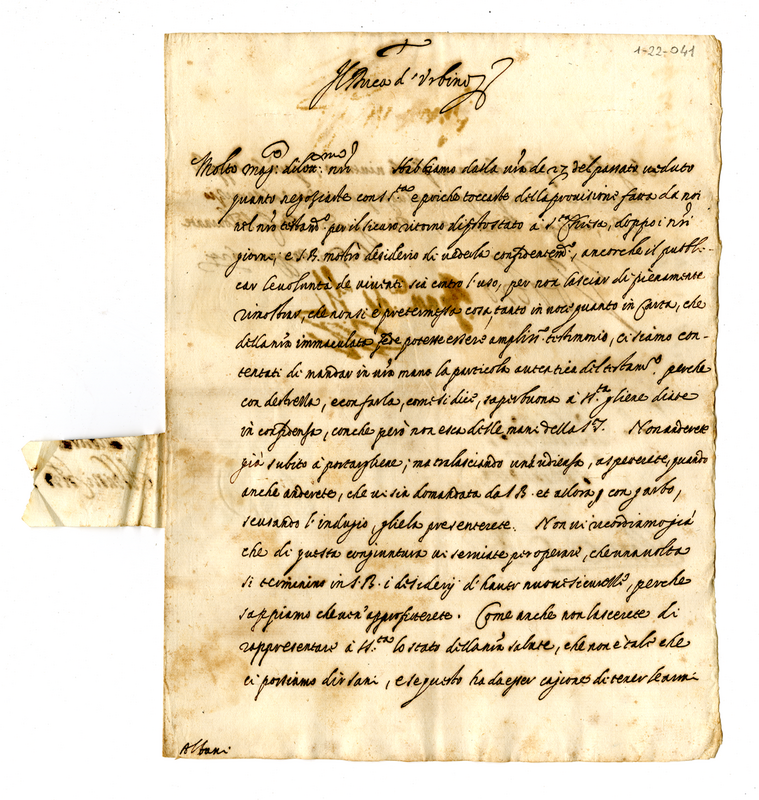 1-22-041
Il Duca d'Urbino
Molto mag.co diletmo nro Habbiamo dalla vra de 27 del passato veduto
quanto negotiaste con S.sta e poiche toccaste della provisione fatta da noi
nel nro testam.o per il sicuro ritorno di stato a S.ta Chiesa, doppo i nri
giorni, e S. B. mostrò desiderio di vederla confidentem.e, ancorche il publi-
car le volontà de viventi sia contro l'uso, per non lasciar di pienamente
rimostrar, che non si è pretermessa cosa, tanto in voce quanto in Carta, che
della nra immaculata fede potesse essere ampliss.o testimonio, ci siamo con-
tentati di mandar in vra mano la particola autentica del testam.o, perche
con destrezza, e con farla, come si dice, saper buona a S.sta gliene diate
in confidenza, con che però non esca delle mani della S.S. Non anderete
già subito à portargliene; ma tralasciando una udienza, aspetterete, quando
anche anderete, che vi sia domandata da S. B. et allora con garbo,
scusando l'indugio, gliela presenterete. Non vi ricordiamo già
che di questa congiuntura vi serviate per operare, che una volta
si terminino in S. B. i desiderij d'haver nuove sicurezze, perche
sappiamo che ve n'approfitterete. Come anche non lascerete di
rappresentare à S.sta lo stato della nra salute, che non è tale che
ci possiamo dir sani, e se questo ha da esser cagione di tener le armi
Albani